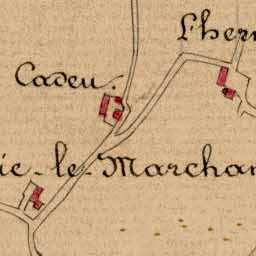 L'her
Cadeu.
ie-le-Marchan